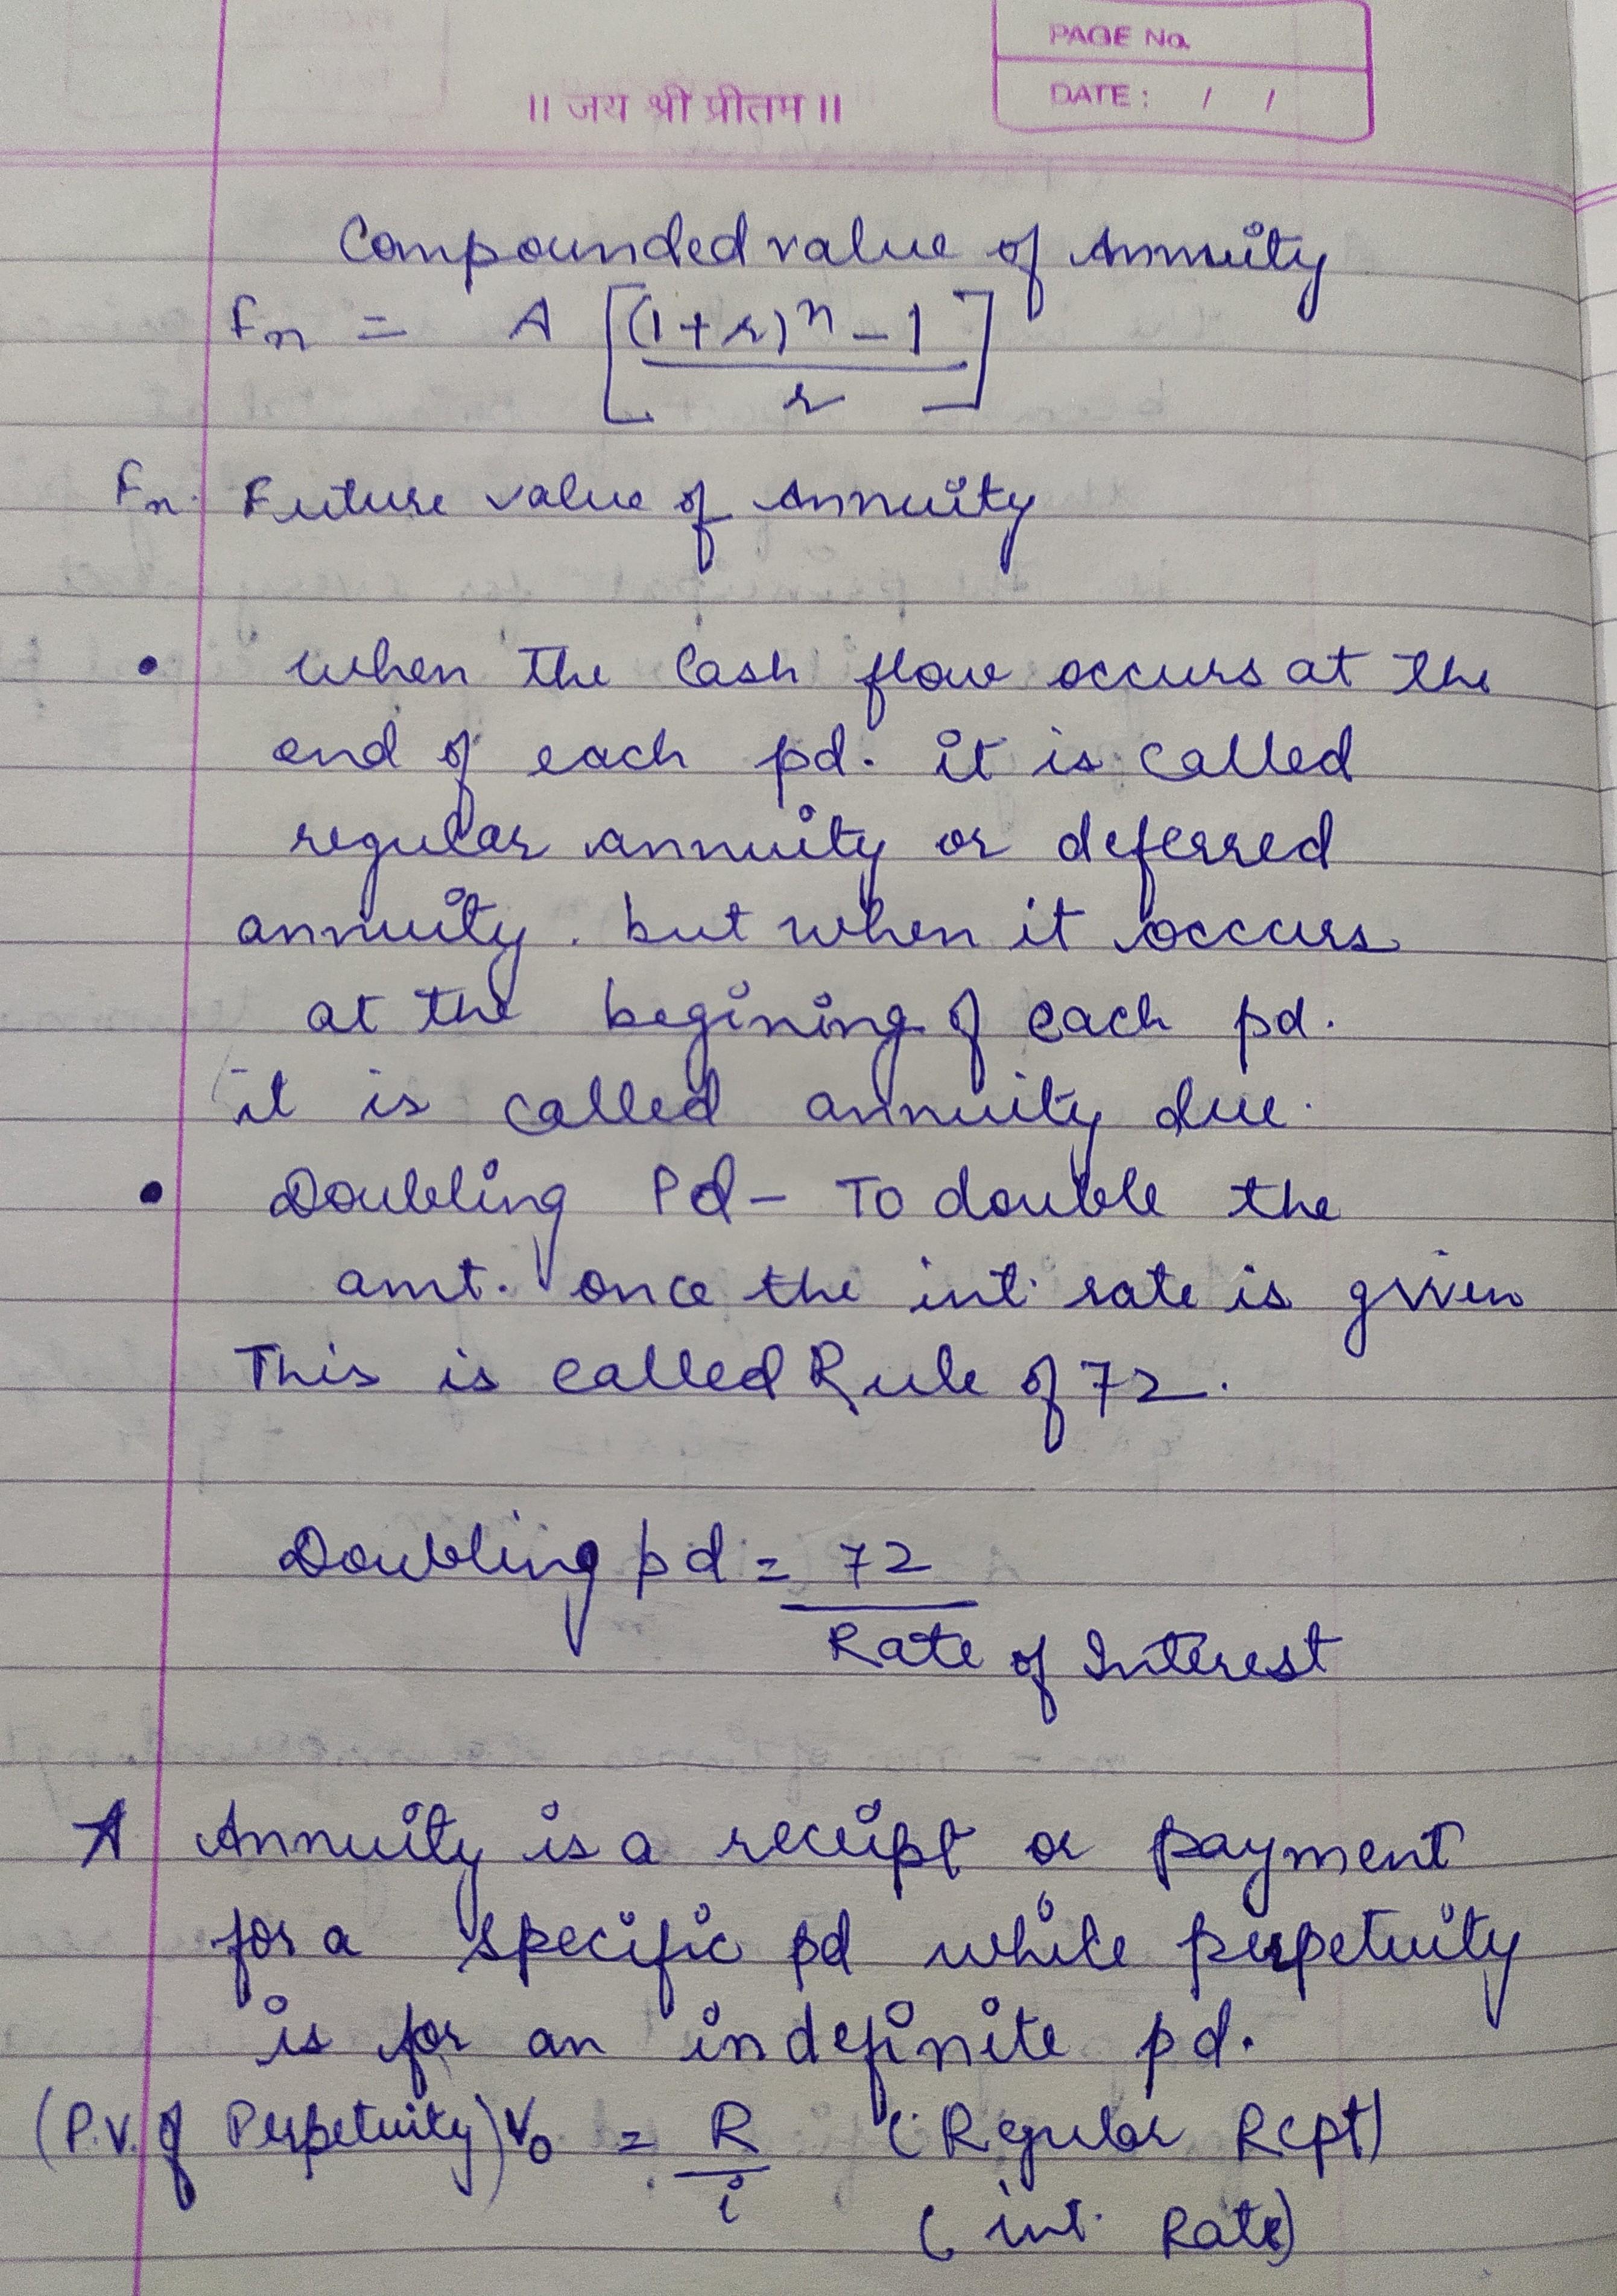 PAGE No.
DATE: / /
॥ जय श्री प्रीतम ॥
Compounded value of Annuity
Fn = A [(1+r)^n - 1 / r]
Fn. Future value of Annuity
• When the Cash flow occurs at the
end of each pd. it is called
regular annuity or deferred
annuity. but when it occurs
at the begining of each pd.
it is called annuity due.
• Doubling Pd - To double the
amt. once the int. rate is given
This is called Rule of 72.
Doubling pd = 72
Rate of Interest
A Annuity is a receipt or payment
for a specific pd while perpetuity
is for an indefinite pd.
(P.V. of Perpetuity) V0 = R (Regular Rcpt)
i (int. Rate)